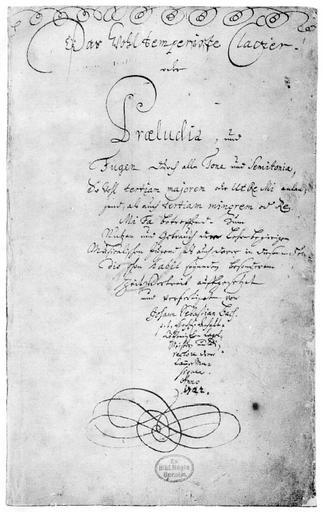 Das Wohltemperirte Clavier.
oder
Præludia, und
Fugen durch alle Tone und Semitonia,
So wohl tertiam majorem oder Ut Re Mi anlan-
gend, als auch tertiam minorem oder Re
Mi Fa betreffend. Zum
Nutzen und Gebrauch der Lehrbegierigen
Musicalischen Jugend, als auch derer in diesem stu-
dio schon habil seyenden besonderem
Zeitvertreib auffgesetzet
und verfertiget von
Johann Sebastian Bach.
p. t. Hochf. Anhalt.
Cöthenischen Capel-
Meistern und Di-
rectore derer
Cammer
Musiquen.
Anno
1722.
Ex
Bibl. Regia
Berolin.